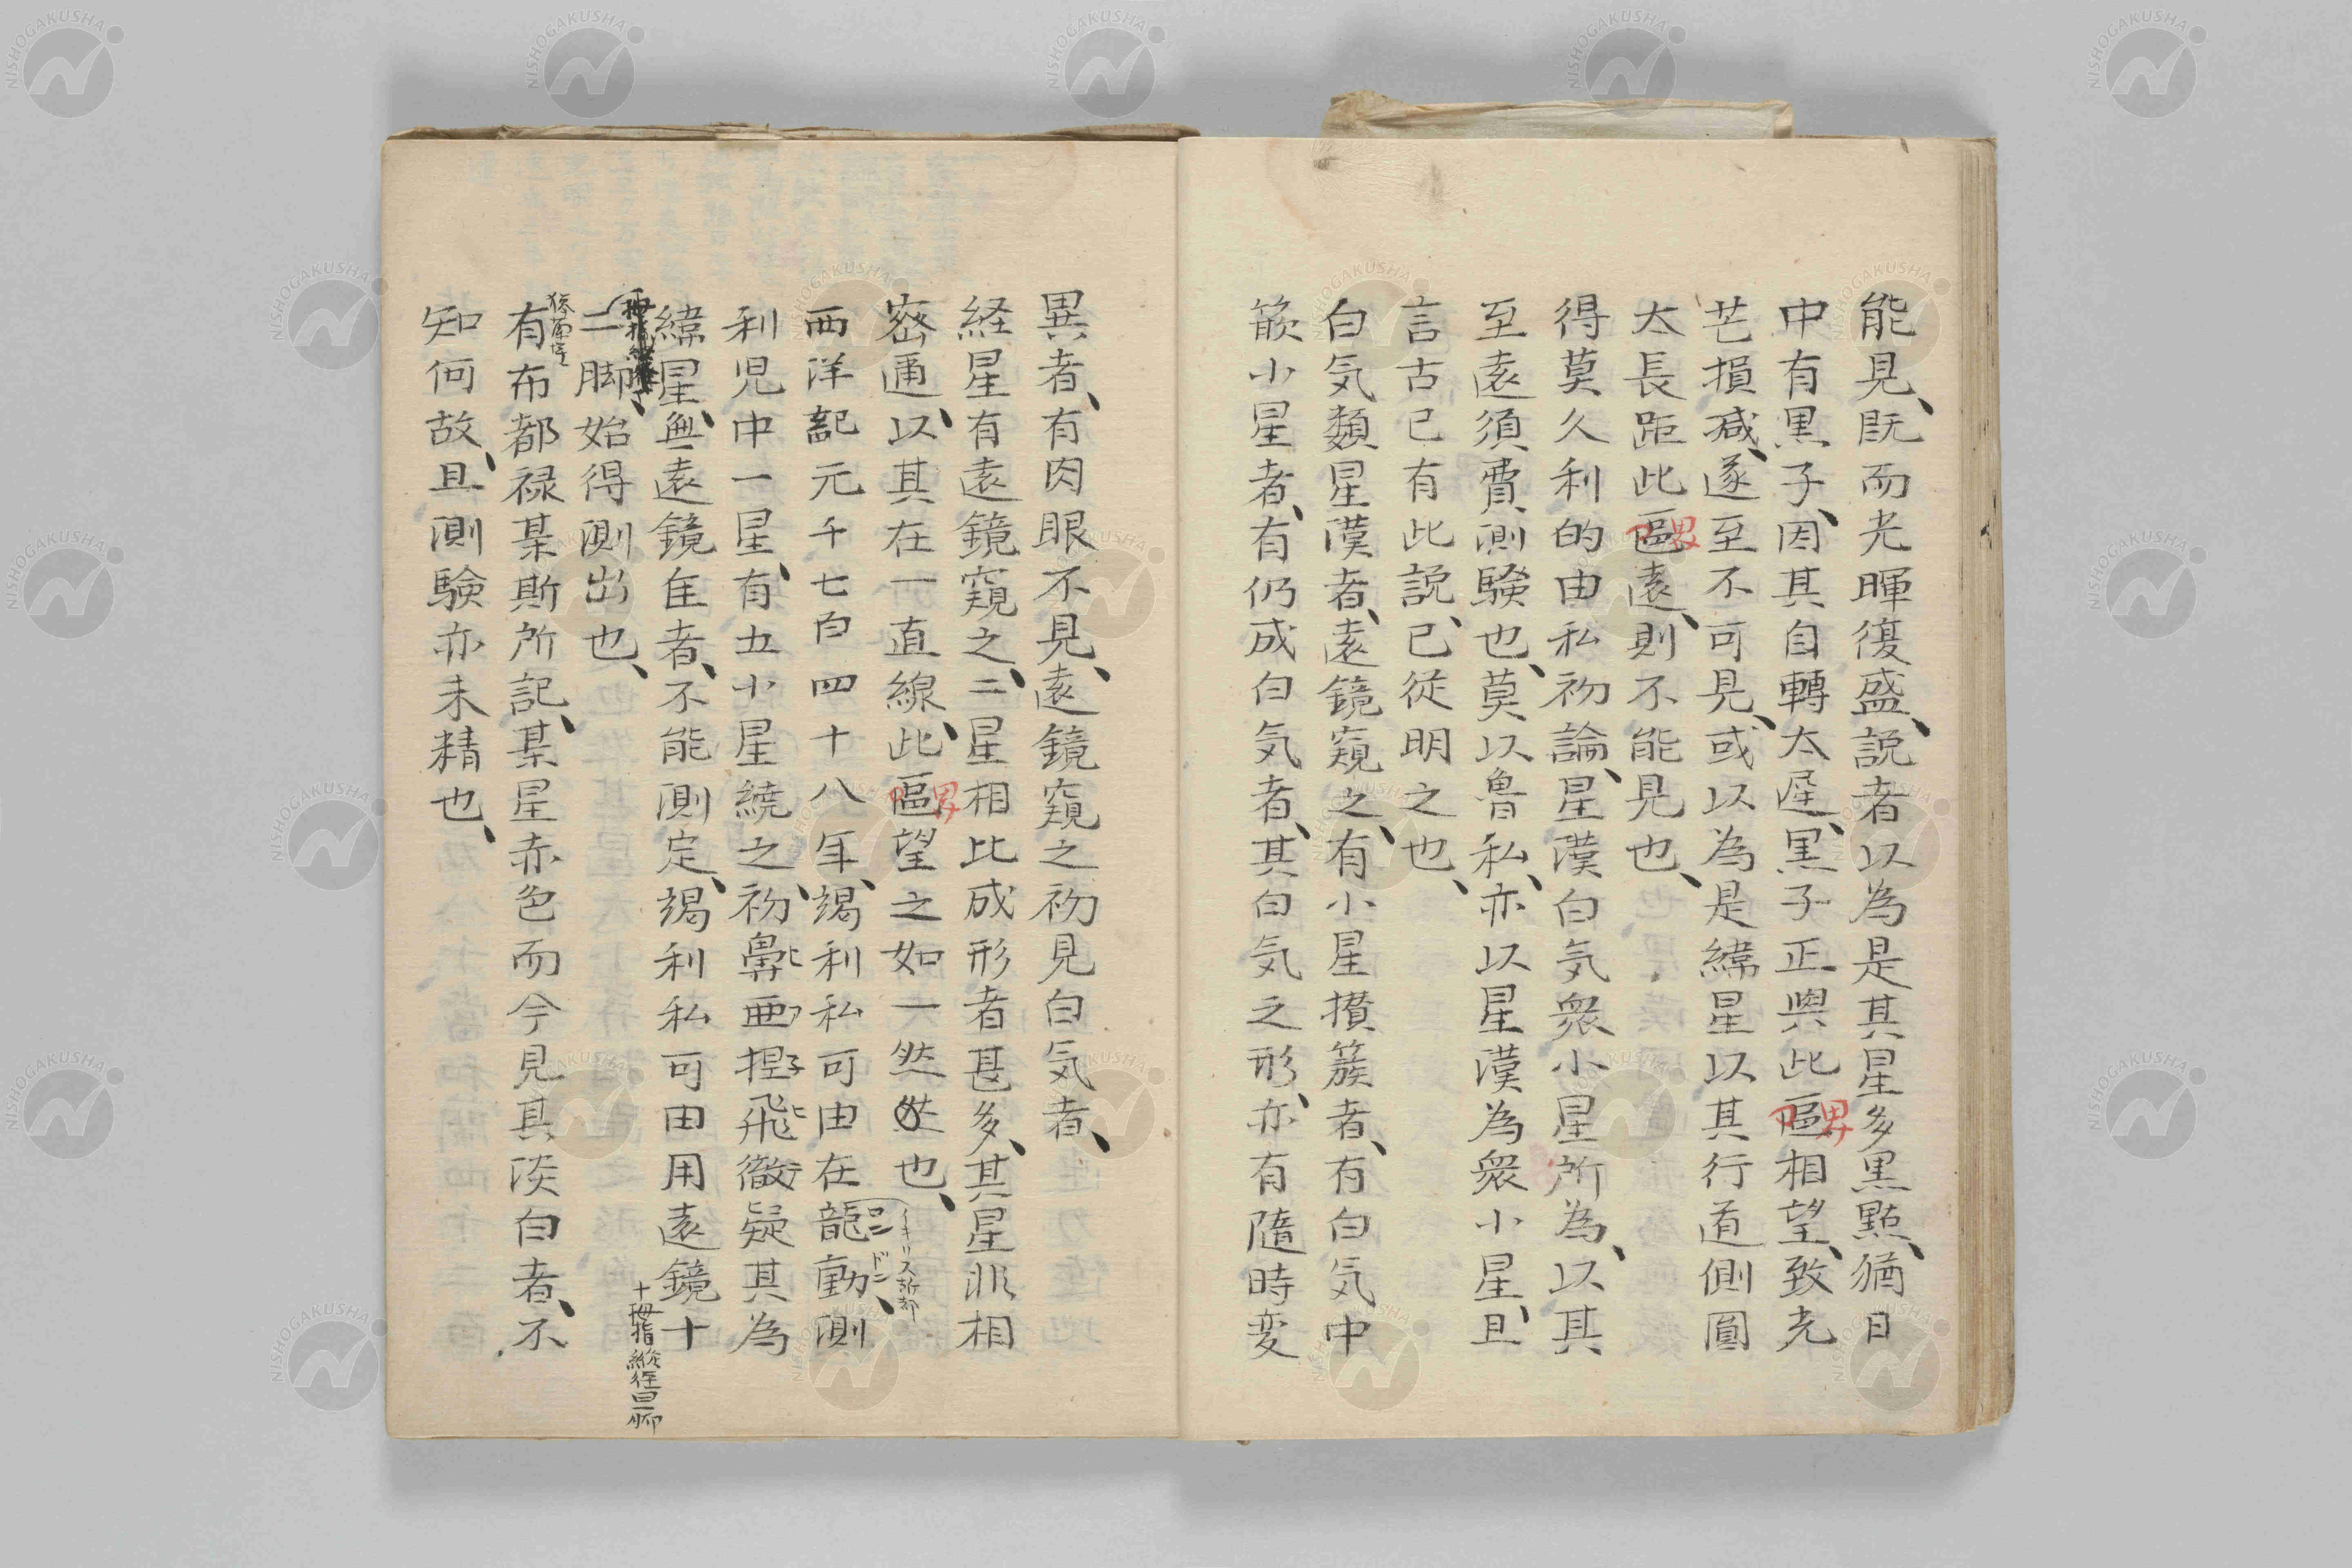 能見、既而光暉復盛、説者以為是其星多黒點、猶日
中有黒子、因其自轉太遅、黒子正與此區相望、致光
芒損減、遂至不可見、或以為是緯星以其行道側圓
太長距此區遠、則不能見也、
得莫久利的由私初論、星漢白気衆小星所為、以其
至遠須費測験也、莫以魯私、亦以星漢為衆小星、且
言古已有此説、已従明之也、
白気類星漢者、遠鏡窺之、有小星攅簇者、有白気中
篏小星者、有仍成白気者、其白気之形、亦有隨時変
異者、有肉眼不見、遠鏡窺之初見白気者、
経星有遠鏡窺之、二星相比成形者甚多、其星非相
密逓、以其在一直線、此區望之如一然也、
西洋記元千七百四十八年、竭利私可由在龍動、測
利児中一星、有五小星繞之、初鼻亜捏飛徹疑其為
緯星、無遠鏡隹者、不能測定、竭利私可由用遠鏡十
二脚、始得測出也、
有布都禄某斯所記、某星赤色而今見其淡白者、不
知何故、且測験亦未精也、
界
界
界
イキリス
ロン
ドン
十拇指
NISHOGAKUSHA